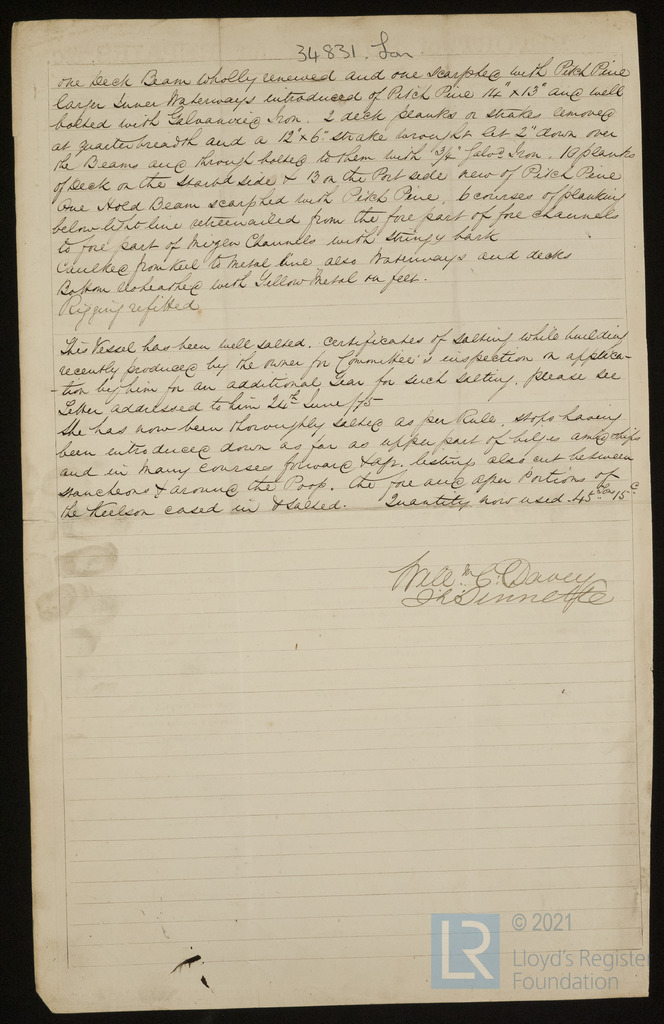 34831. Lon
one Deck Beam wholly renewed and one scarphed with Pitch Pine
larger Inner Waterways introduced of Pitch Pine 14" x 13" and well
bolted with Galvanized Iron. 2 deck planks or strakes removed
at quarterbreadth and a 12" x 6" strake wrought let 2" down over
the Beams and through bolted to them with 3/4" Galvd Iron. 10 planks
of Deck on the Starbd side & 13 on the Port side new of Pitch Pine
One Hold Beam scarphed with Pitch Pine. 6 courses of planking
below light line retreenailed from the fore part of fore channels
to fore part of Mizen Channels with stringy bark
Caulked from keel to Metal line also Waterways and decks
Bottom Unsheathed with Yellow Metal on felt.
Rigging refitted
This Vessel has been well salted. Certificates of salting while building
recently produced by the owner for Committee's inspection on applica-
-tion by him for an additional Year for such salting, please see
Letter addressed to him 24th June/75
She has now been thoroughly salted as per Rule, stops having
been introduced down as far as upper part of bilges amidships
and in many courses forward & aft, listing also cut between
stancheons & around the Poop. the fore and after Portions of
the Keelson cased in & salted. Quantity now used. 45 15c
Willm C. Davey
© 2021
LR
Lloyd's Register
Foundation